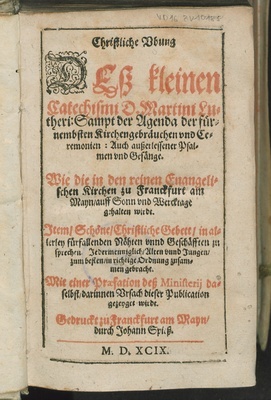 Christliche Vbung
Deß kleinen
Catechismi D. Martini Lu-
theri: Sampt der Agenda der für-
nembsten Kirchengebräuchen vnd Ce-
remonien: Auch außerlesener Psal-
men vnd Gesänge.
Wie die in den reinen Euangeli-
schen Kirchen zu Franckfurt am
Mayn/auff Sonn vnd Wercktage
gehalten wirdt.
Item/ Schöne/Christliche Gebett/ in al-
lerley fürfallenden Nöhten vnnd Geschäfften zu
sprechen. Jedermenniglich/Alten vnnd Jungen/
zum besten/in richtige Ordnung zusam-
men gebracht.
Mit einer Præfation deß Ministerij da-
selbst/darinnen Vrsach dieser Publication
gezeyget wirdt.
Gedruckt zu Franckfurt am Mayn/
durch Johann Spieß.
M. D. XCIX.